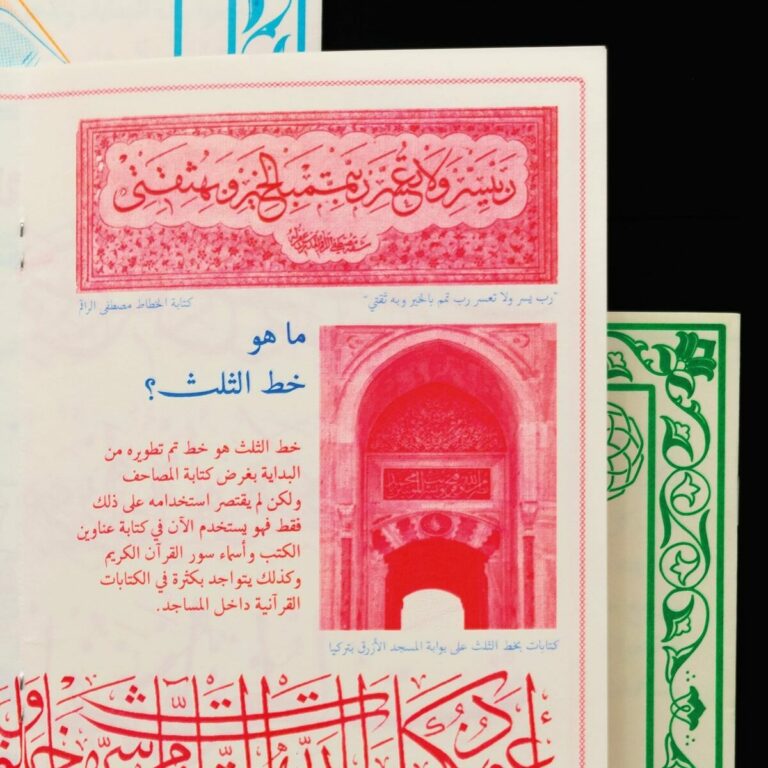 رب يسر ولا تعسر رب تمم بالخير وبه ثقتي
"رب يسر ولا تعسر رب تمم بالخير وبه ثقتي"
كتابة الخطاط مصطفى الراقم
ما هو
خط الثلث؟
خط الثلث هو خط تم تطويره من
البداية بغرض كتابة المصاحف
ولكن لم يقتصر استخدامه على ذلك
فقط فهو يستخدم الآن في كتابة عناوين
الكتب وأسماء سور القرآن الكريم
وكذلك يتواجد بكثرة في الكتابات
القرآنية داخل المساجد.
كتابات بخط الثلث على بوابة المسجد الأزرق بتركيا
أعوذ بكلمات الله التامات من شر ما خلق